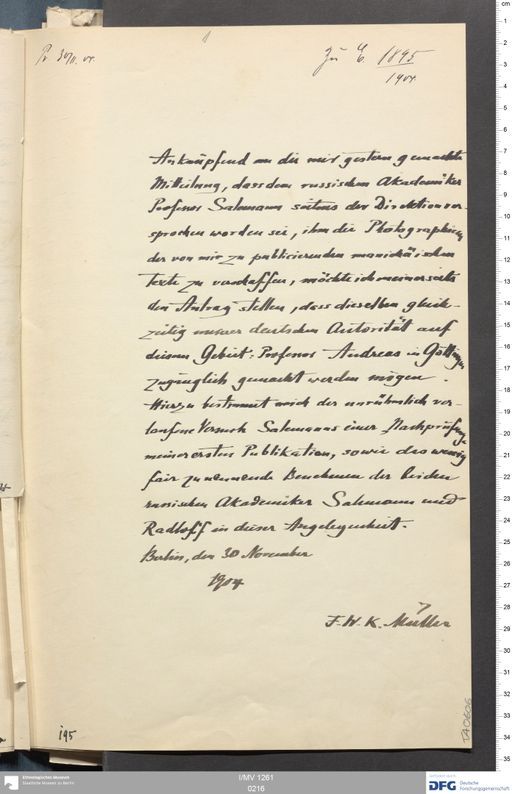 Pr. 30/11. 04.
zu E. 1895
1904.
Anknüpfend an die mir gestern gemachte
Mitteilung, dass dem russischen Akademiker
Professor Salemann seitens der Direktion ver-
sprochen worden sei, ihm die Photographien
der von mir zu publicierenden manichäischen
Texte zu verschaffen, möchte ich meinerseits
den Antrag stellen, dass dieselben gleich-
zeitig unserer deutschen Autorität auf
diesem Gebiet: Professor Andreas in Göttingen
zugänglich gemacht werden mögen.
Hierzu bestimmt mich der unrühmlich ver-
laufene Versuch Salemanns einer Nachprüfung
meiner ersten Publikation, sowie das wenig
fair zu nennende Benehmen der beiden
russischen Akademiker Salemann und
Radloff in dieser Angelegenheit.
Berlin, den 30 November
1904
F. W. K. Müller
195
TA 0606
Ethnologisches Museum
Staatliche Museen zu Berlin
I/MV 1261
0216
gefördert durch
DFG Deutsche
Forschungsgemeinschaft
cm
1
2
3
4
5
6
7
8
9
10
11
12
13
14
15
16
17
18
19
20
21
22
23
24
25
26
27
28
29
30
31
32
33
34
35